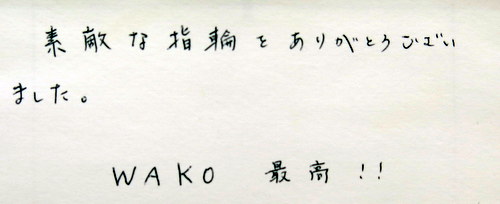 素敵な指輪をありがとうござい
ました。
WAKO 最高!!